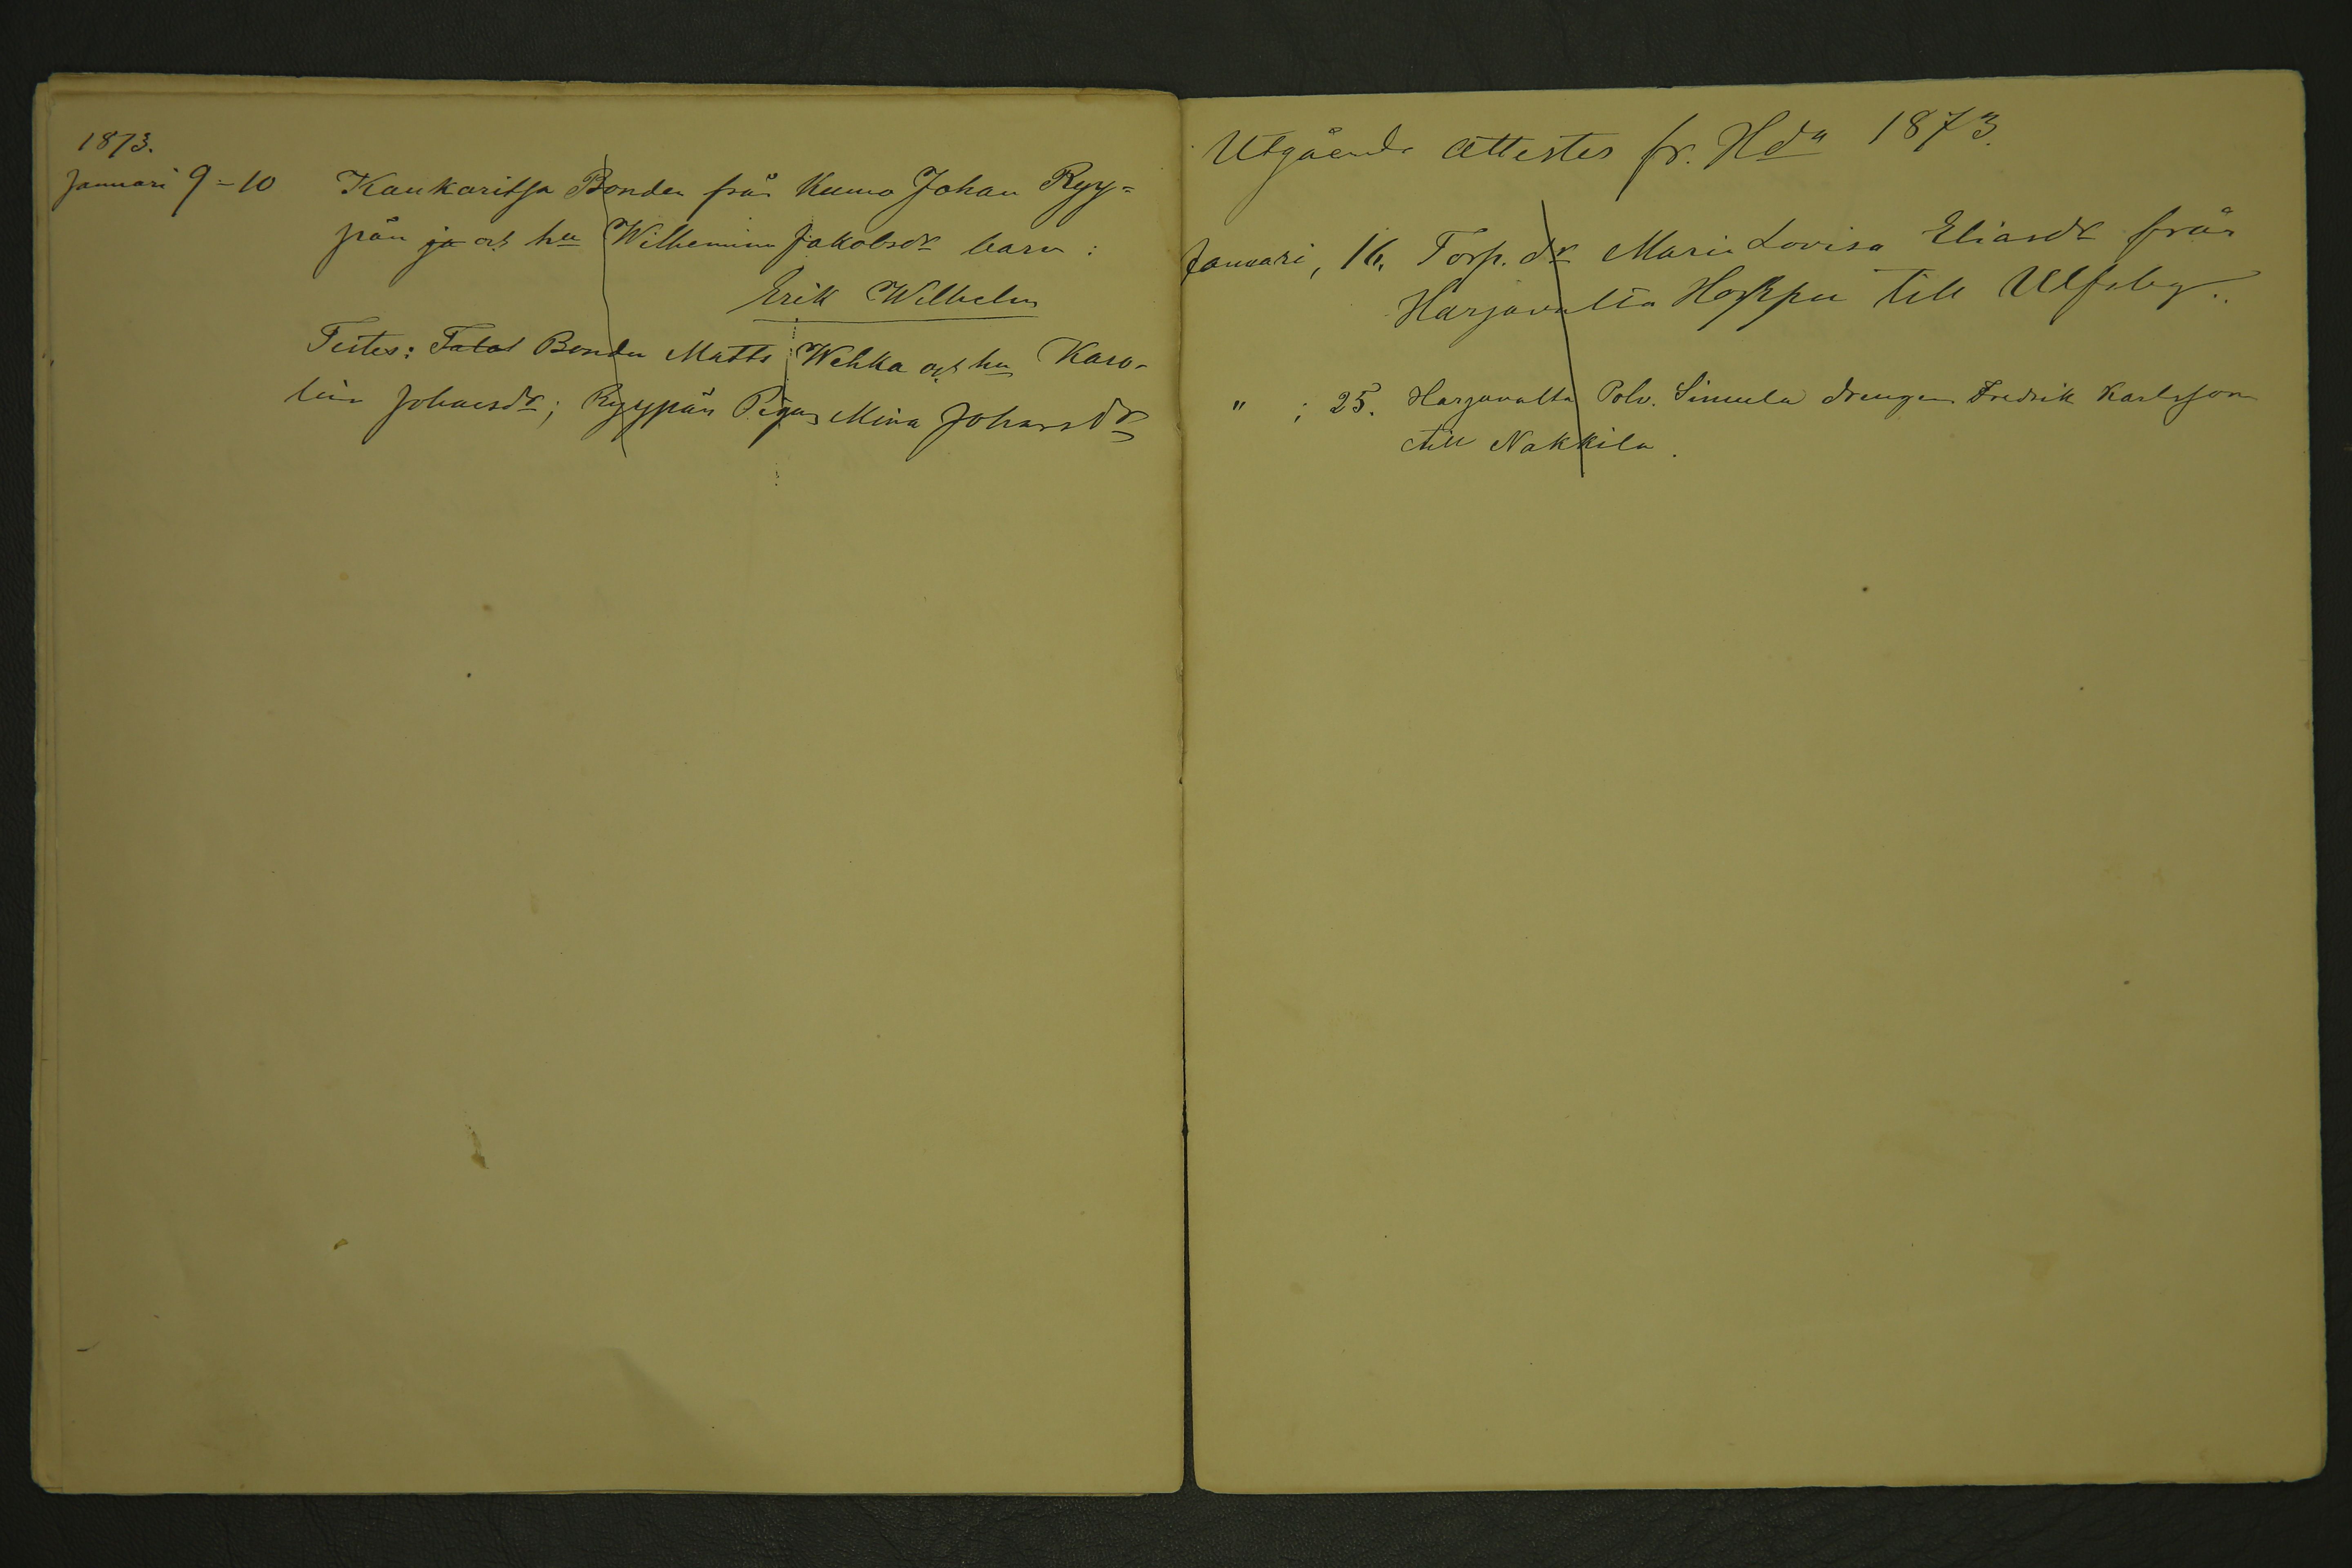 1873.
Januari 9-10 Kaukaritsa Bonden från Kumo Johan Ryy=
pän ja och hu Wilhemina Jakobsdr barn :
Erik Wilhelm
Testes: Talol Bonden Matts Wehka och hu Karo-
lin Johansdr; Ryypän Pigan Mina Johansdr
Utgående attester fr. Hda 1873.
Januari, 16. Torp. dr Maria Lovisa Eliasdr från
Harjavalta Hoppu till Ulfsby..
" ; 25. Harjavalta Polv. Simula drengen Fredrik Karlsson
till Nakkila.